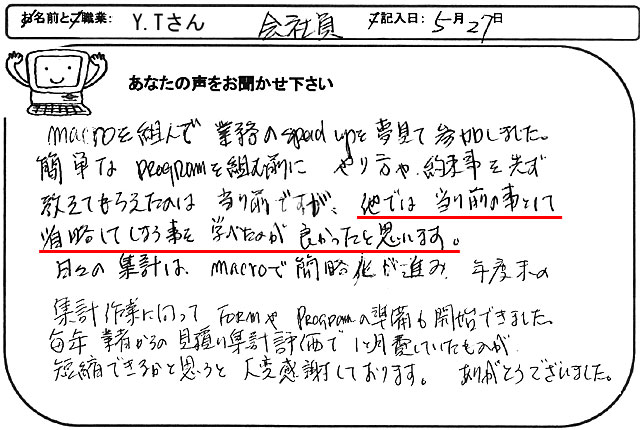 お名前とご職業: Y.Tさん 会社員 ご記入日: 5月27日
あなたの声をお聞かせ下さい
macroを組んで 業務のspeed upを夢見て 参加しました。
簡単な programを組む前に やり方や、約束事を先ず
教えてもらえたのは 当り前ですが、他では 当り前の事として
省略してしまう事を 学べたのが 良かったと思います。
日々の 集計は、macroで簡略化が進み、年度末の
集計作業に向って FormやProgramの準備も開始できました。
毎年 業者からの見積り集計評価で 1ヶ月費していたものが
短縮できるかと思うと 大変感謝しております。 ありがとうございました。